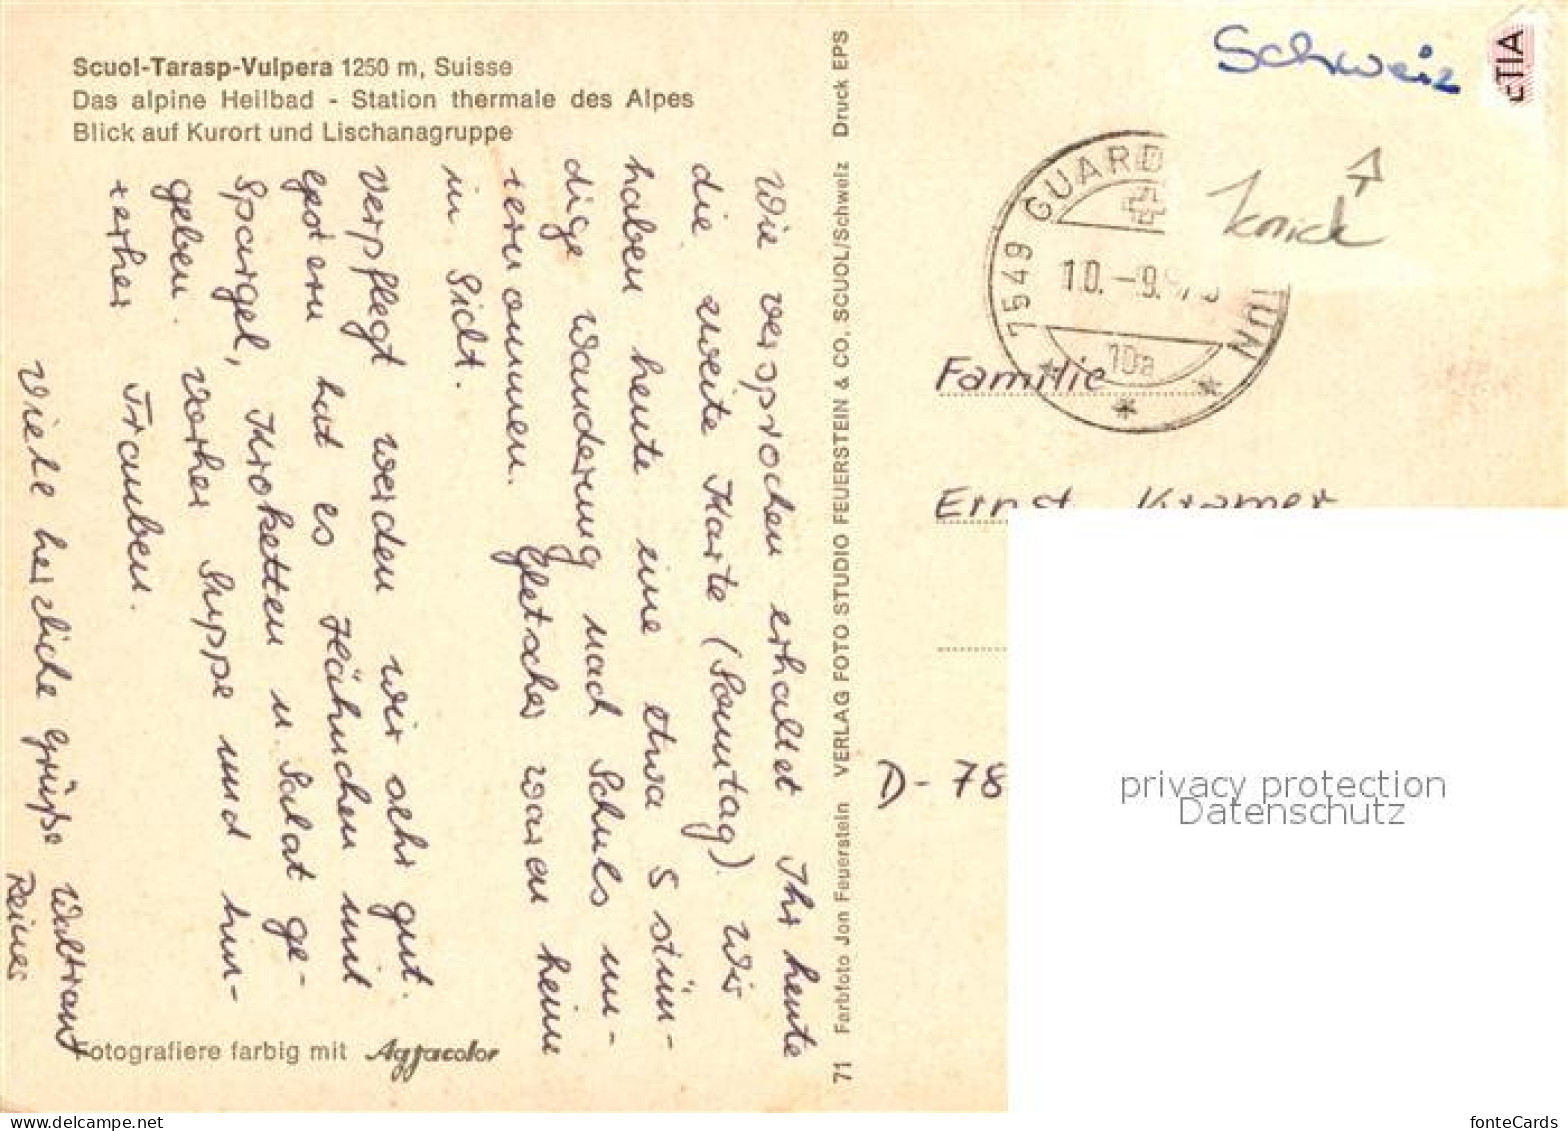 Scuol-Tarasp-Vulpera 1250 m, Suisse
Das alpine Heilbad - Station thermale des Alpes
Blick auf Kurort und Lischanagruppe
Wie versprochen erhaltet Ihr heute
die zweite Karte (Sonntag). Wir
haben heute eine etwa 5 stün-
dige Wanderung nach Schuls un-
ternommen. Gletscher waren keine
in Sicht.
Verpflegt werden wir sehr gut.
Gestern hat es Hähnchen mit
Spargel, Kroketten u. Salat ge-
geben. Vorher Suppe und hin-
terher Trauben.
Viele herzliche Grüße Waltraud
Reiner
Fotografiere farbig mit Agfacolor
71 Farbfoto Jon Feuerstein VERLAG FOTO STUDIO FEUERSTEIN & CO, SCUOL/Schweiz Druck EPS
Schweiz
ETIA
Knick
7549 GUARD TUN
10.-9.
10a
Familie
Ernst Kramer
D-78
privacy protection
Datenschutz
fonteCards